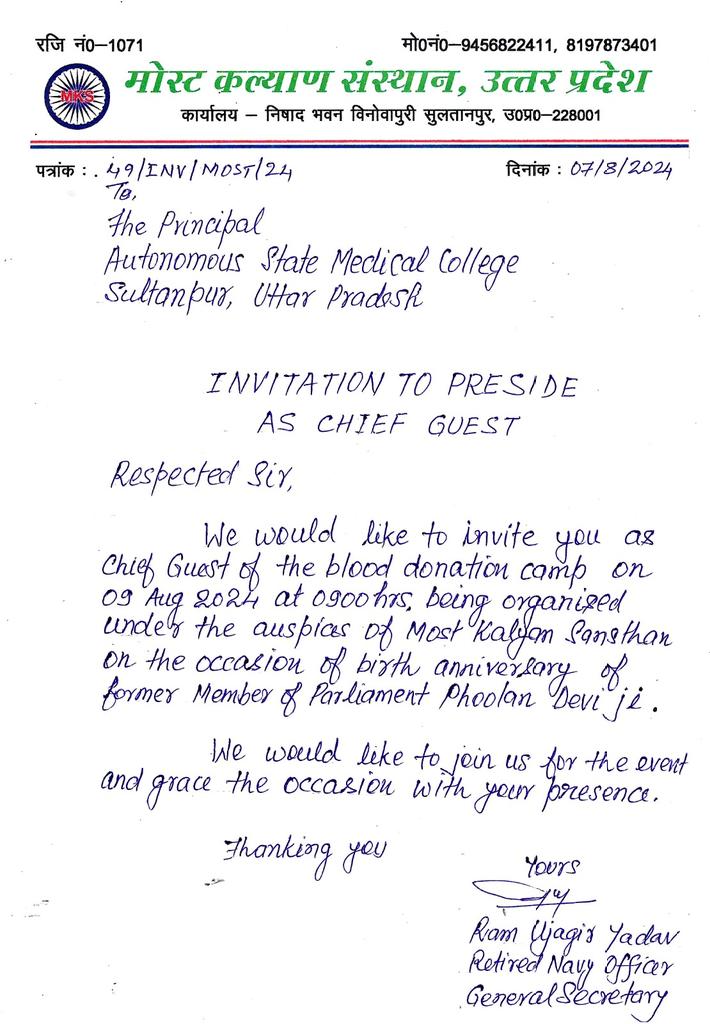 रजि नं0–1071
मो0नं0–9456822411, 8197873401
MKS
मोस्ट कल्याण संस्थान, उत्तर प्रदेश
कार्यालय – निषाद भवन विनोवापुरी सुलतानपुर, उ0प्र0–228001
पत्रांक : . 49/INV/MOST/24
दिनांक : 07/8/2024
To,
The Principal
Autonomous State Medical College
Sultanpur, Uttar Pradesh
INVITATION TO PRESIDE
AS CHIEF GUEST
Respected Sir,
We would like to invite you as
Chief Guest of the blood donation camp on
09 Aug 2024 at 0900hrs, being organized
under the auspices of Most Kalyan Sansthan
on the occasion of birth anniversary of
former Member of Parliament Phoolan Devi ji.
We would like to join us for the event
and grace the occasion with your presence.
Thanking you
Yours
Ram Ujagir Yadav
Retired Navy Officer
General Secretary